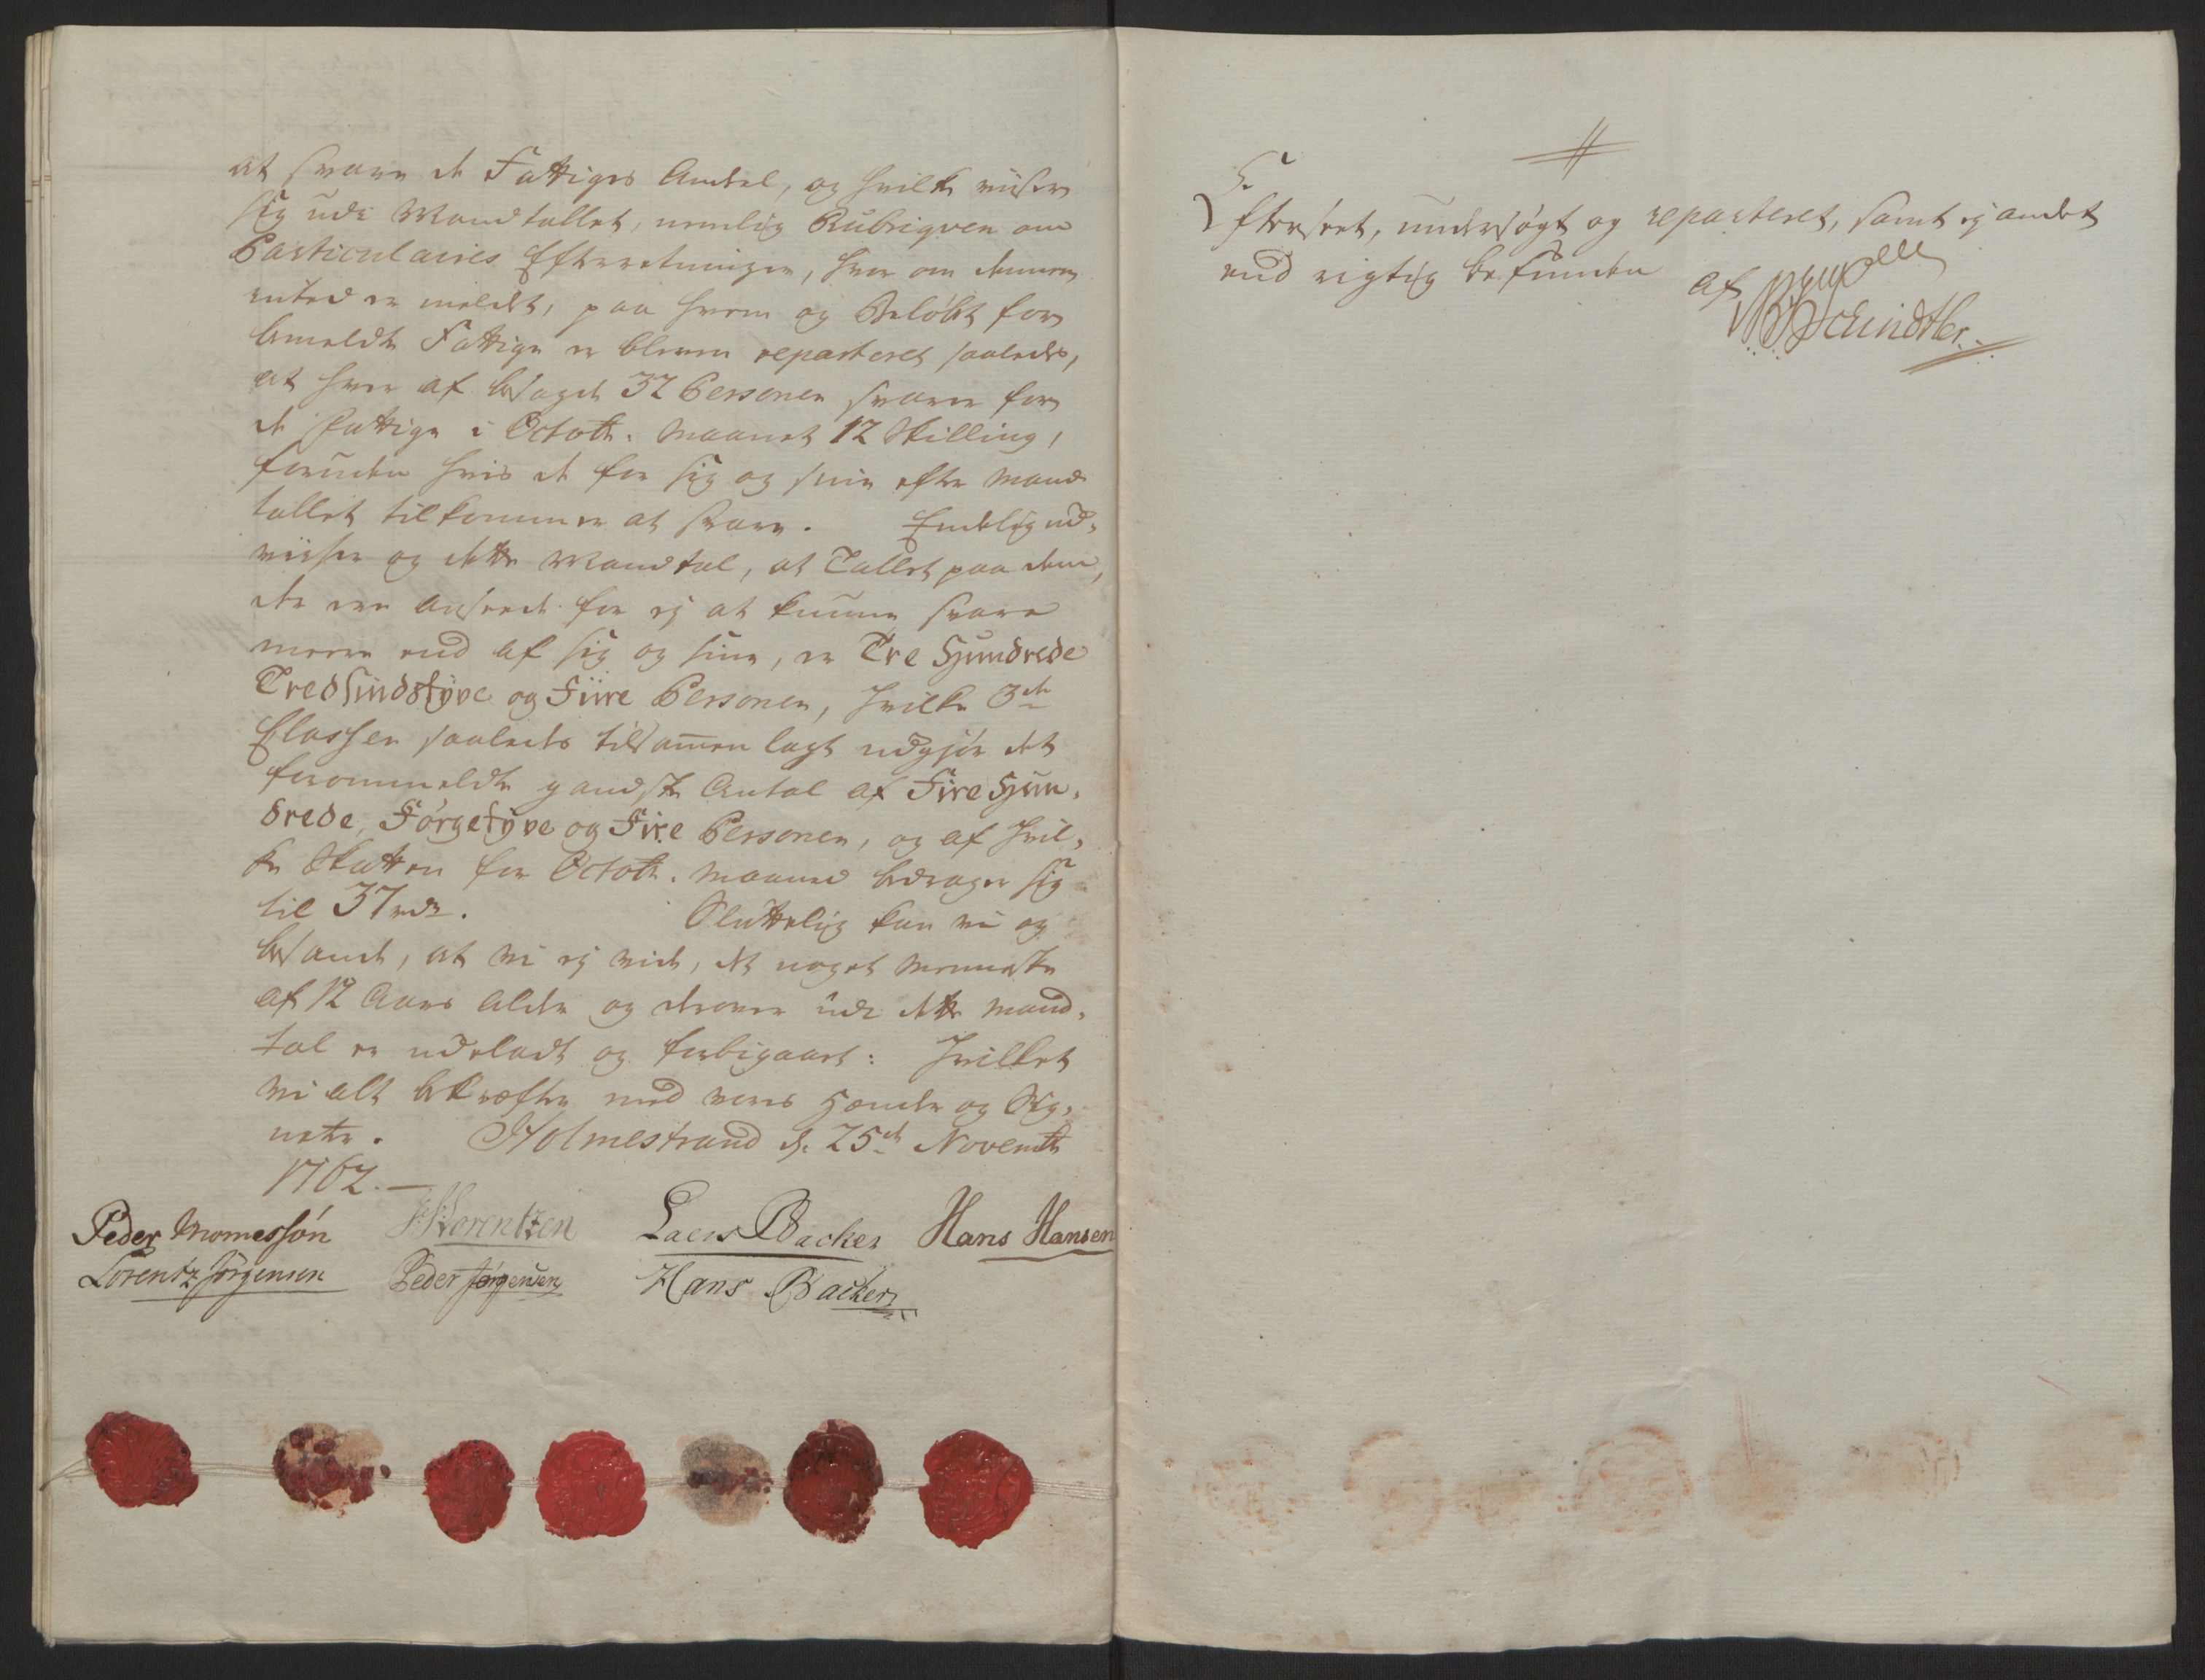 at svare de Fattiges Andel, og hvilke viiser
sig udi Mandtallet, nemlig Rubriqven om
Particulaires Efterretninger, hvor om dennem
er meldt, paa hvem og Beløbet for
bemeldte Fattige er bleven reparteret saaledes,
at hver af besagde 37 Personer svarer for
de fattige i Octobr. Maanet 12 Skilling,
foruden hvis de for sig og sine efter Mand
tallet tilkommer at svare. Endelig ud-
viiser og dette Mandtal, at Tallet paa dem,
der ere ansede for ej at kunne svare
meere end af sig og sine, er Tre Hundrede
Tredsindstyve og Fiire Personer, hvilke 3de
Classer saaledes tilsamen lagt udgjør det
forommeldte gandske Antal af Fire Hun-
drede, Förgetyve og Fire Personer, og af hvil-
ke Skatten for Octobr. Maaned bedrager sig
til 37 rdr. Sluttelig kan vi og
besande, at vi ej vide, at noget Menniske
af 12 Aars Alder og derover udi dette Mand-
tal er udeladt og forbigaaet: Hvilket
vi alt bekræfter med vores Hænder og Sig-
neter. Holmestrand d. 25de Novembr
1762.
Peder Thomessøn Lorentzen Laers Backer Hans Hansen
Lorentz Jørgensen Peder Jørgensen Hans Backer
Efterseet, undersøgt og reparteret, samt ej andet
end rigtig befunden af
Schindtler.